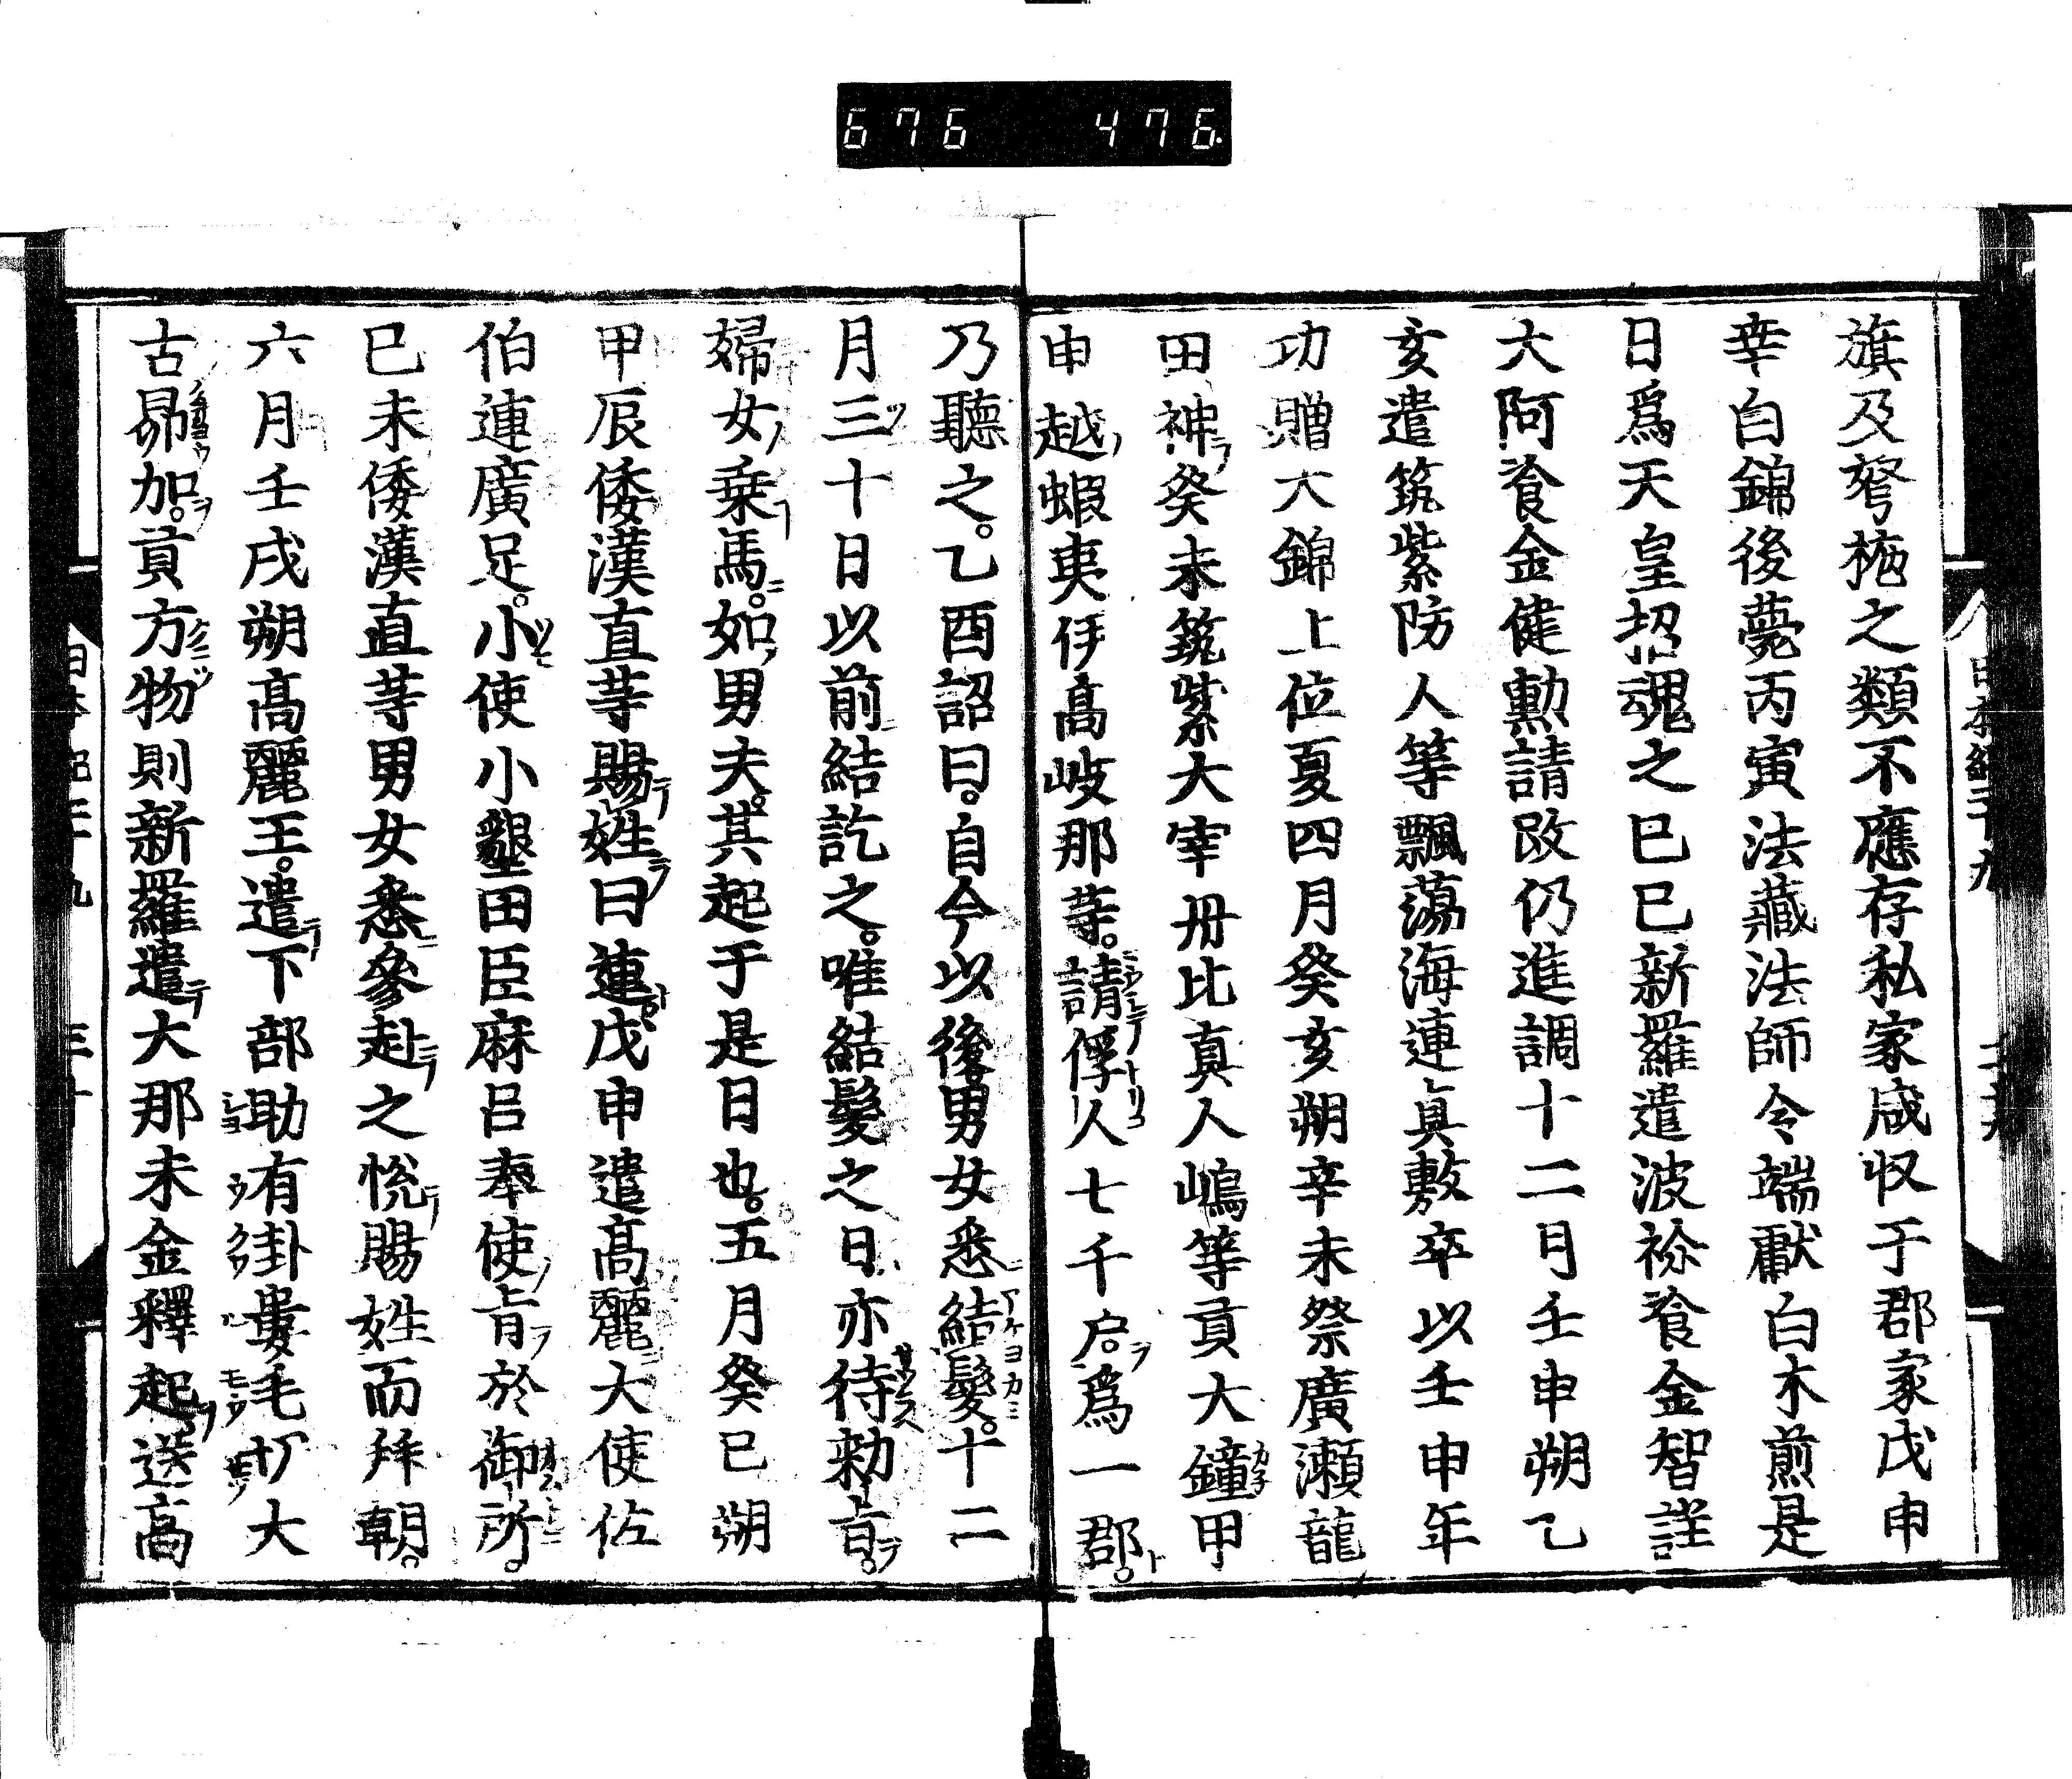 676 476.
旗及弩抛之類不應存私家咸収于郡家戊申
幸白錦後薨丙寅法藏法師令端獻白朮煎是
日爲天皇招魂之巳巳新羅遣波祢飡金智謹
大阿飡金健勲請政仍進調十二月壬申朔乙
亥遣筑紫防人等飄蕩海連眞敷卒以壬申年
功贈大錦上位夏四月癸亥朔辛未祭廣瀬龍
田神癸未筑紫大宰丹比真人嶋等貢大鐘甲
申越蝦夷伊髙岐那等。請俘人七千戸。爲一郡。
乃聽之。乙酉詔曰。自今以後男女悉結髮。十二
月三十日以前結訖之。唯結髮之日亦待勅旨。
婦女乗馬。如男夫。其起于是日也。五月癸巳朔
甲辰倭漢直等賜姓曰連戊申遣髙麗大使佐
伯連廣足。小使小墾田臣麻呂奉使旨於御所。
巳未倭漢直等男女悉參赴之悦賜姓而拜朝。
六月壬戌朔髙麗王。遣下部助有卦婁毛切大
古昴加。貢方物則新羅遣大那末金釋起送髙